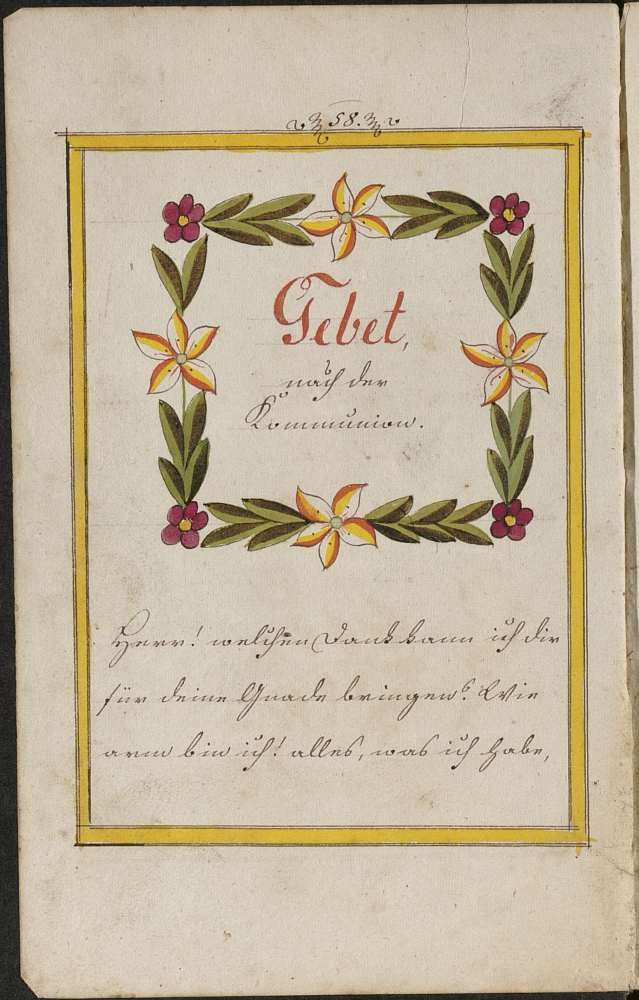 58.
Gebet,
nach der
Kommunion.
Herr! welchen Dank kann ich dir
für deine Gnade bringen? Wie
arm bin ich! alles, was ich habe,